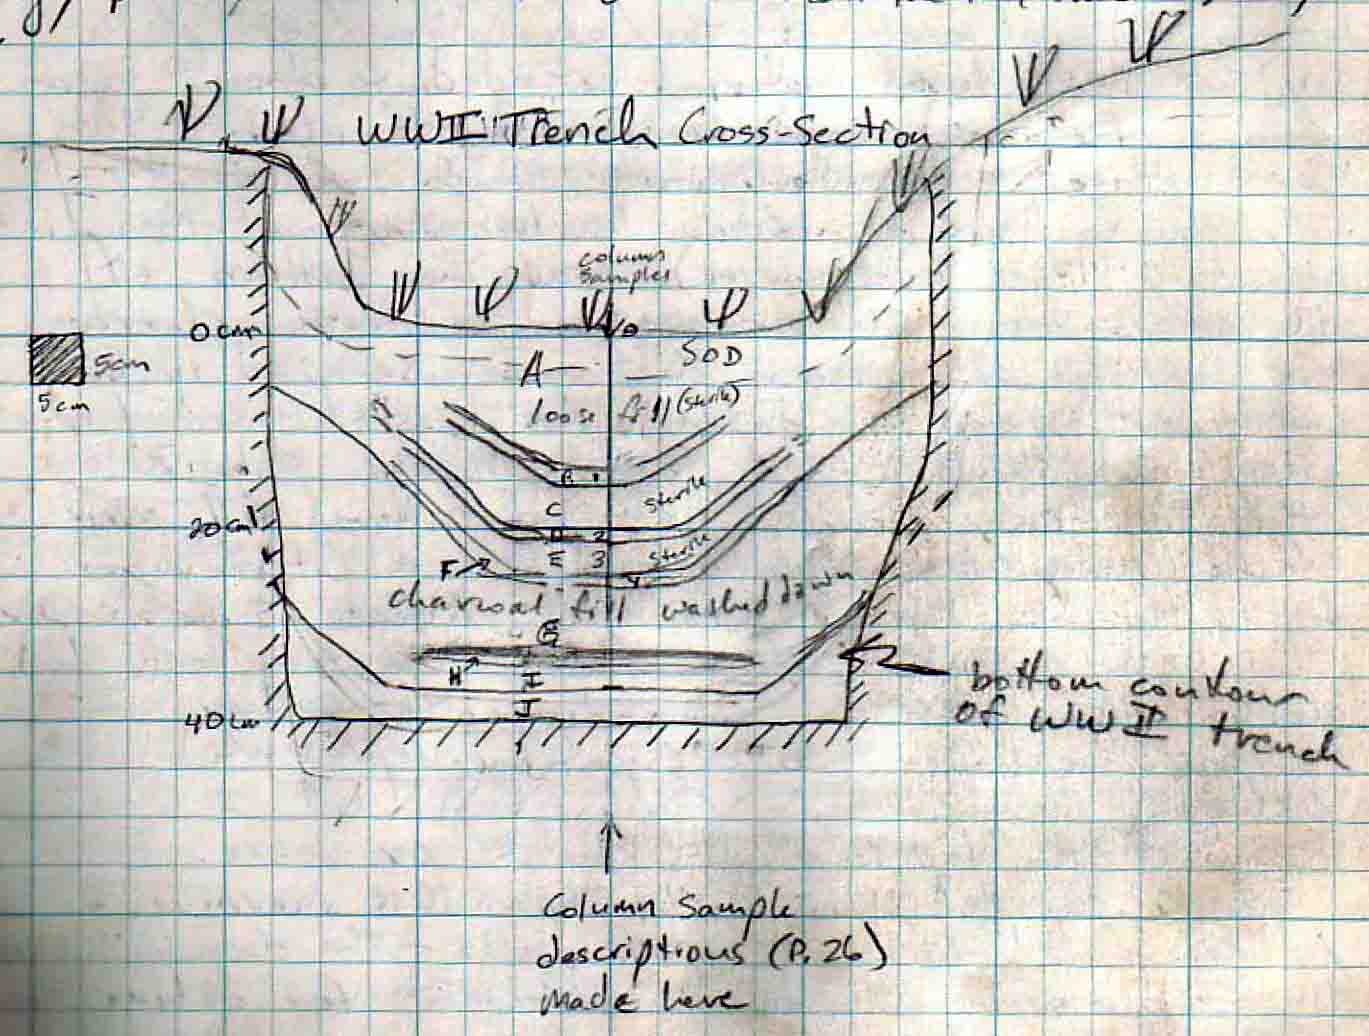 WWII Trench Cross-Section
column
samples
0 cm
A
SOD
5cm
5cm
loose fill (sterile)
B 1
sterile
C
20 cm
D 2
E 3
sterile
F
charcoal fill washed down
G
H
I
bottom contour
of WWII trench
J
40 cm
Column Sample
descriptions (P. 26)
made here